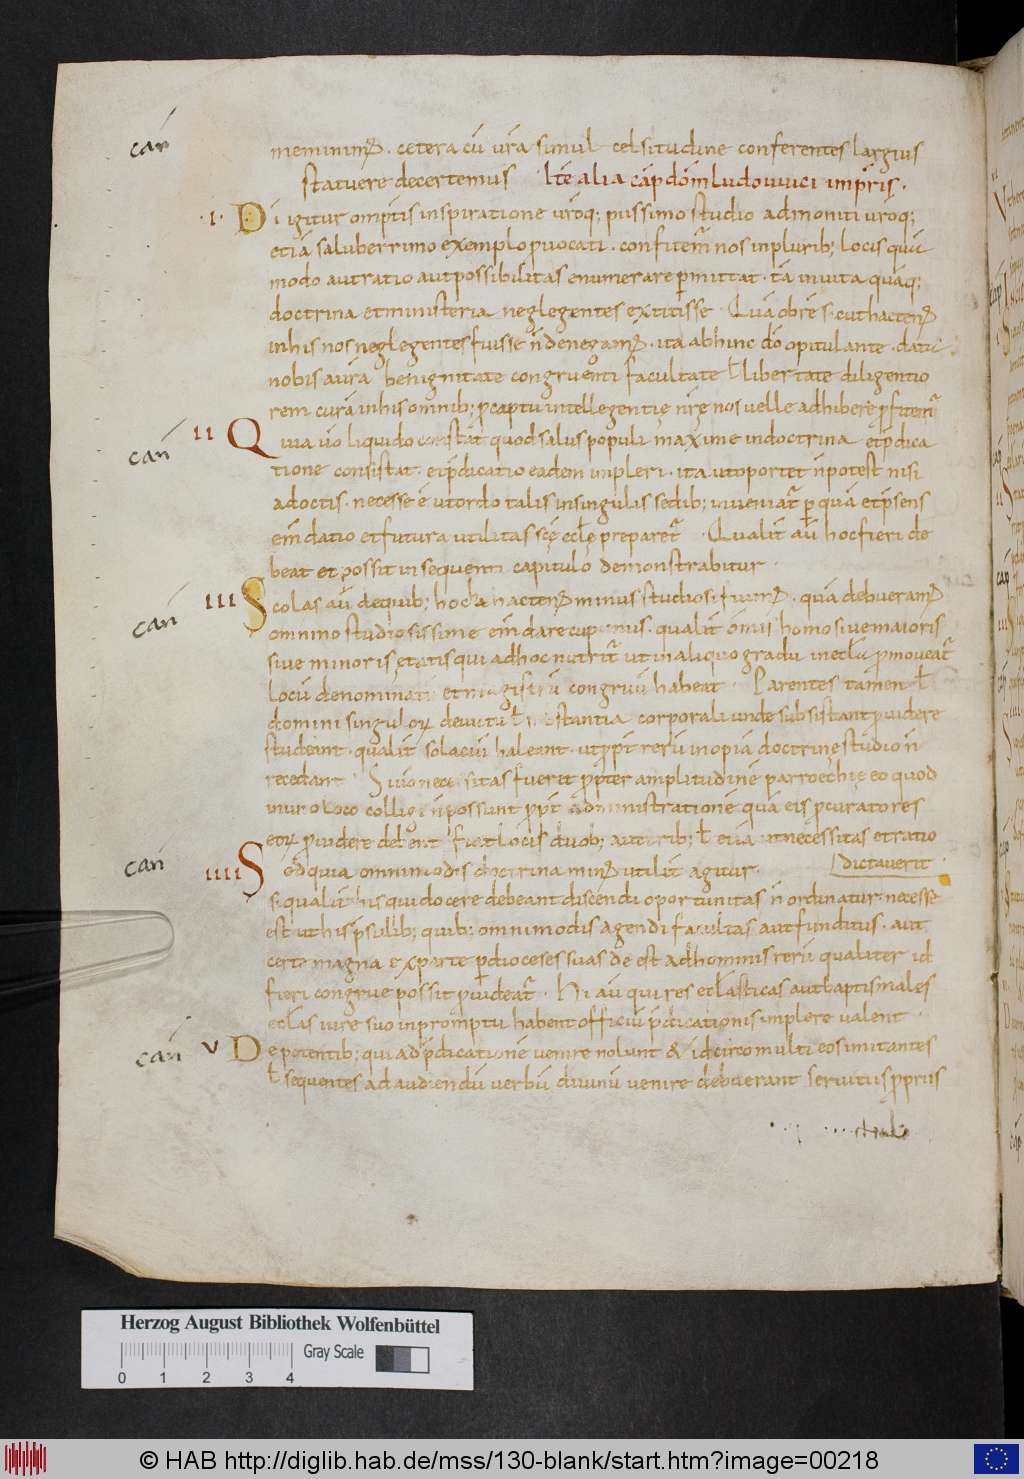 meminim̅. cetera cū ur̅a simul celsitudine conferentes largius
statuere decertemus Ite̅ alia cap̅ dom̅ ludouuici imp̅ris.
·I· Di igitur omp̅tis inspiratione ur̅oq; piissimo studio admoniti ur̅oq;
etiā saluberrimo exemplo puocati. confitem̅ nos inplurib; locis quā
modo aut ratio aut possibilitas enumerare pmittat. tā in uita quāq;
doctrina et ministeria neglegentes extitisse Quā obrē sicut hacten̅
in his nos neglegentes fuisse n̄ denegam̅. ita abhinc dō opitulante. data
nobis a ur̅a benignitate congruenti facultate ł libertate diligentio
rem curā in his omnib; p captu intellegentię nr̅ę nos uelle adhibere pfitem̅
can II Quia uō liquido constat quod salus populi maxime in doctrina et p̅dica
tione consistat. et p̅dicatio eadem impleri. ita ut oportet n̄ potest nisi
a doctis. necesse ē ut ordo talis in singulis sedib; inueniat̅ p quā et p̅sens
em̅datio et futura utilitas sc̅ę eccl̅ę preparet̅. Qualit̅ aū hoc fieri de
beat et possit in sequenti capitulo demonstrabitur.
can III Scolas aū de quib; hoc hacten̅ minus studiosi fuim̅. quā debueram̅
omnino studiosissime em̅dare cupimus. qualit̅ om̅is homo siue maioris
siue minoris ętatis qui ad hoc nutrit̅ ut in aliquo gradu in eccl̅a pmoueat̅
locū denominati et magistrū congruū habeat. Parentes tamen ł
domini singulorū de uictu ł substantia corporali unde subsistant puidere
studeant. qualit̅ solacium habeant. ut ppt̅ rerū inopiā doctrinę studio n̄
recedant Si uō necessitas fuerit ppter amplitudinē parroechię eo quod
in uno loco colligi n̄ possunt ppt̅ administrationē quā eis pcuratores
eorū puidere debent fiat locis duob; aut trib; ł etiā ut necessitas et ratio
can IIII Sed quia omnimodis doctrina min̅ utilit̅ agitur. dictauerit.
si qualit̅ his qui docere debeant discendi oportunitas n̄ ordinatur. necesse
est ut his p̅sulib; quib; omnimodis agendi facultas aut funditus. aut
certe magna ex parte p dioceses suas deest ad hominis rerū qualiter id
fieri congrue possit puideat̅. Hi aū qui res eccl̅asticas aut baptismales
eccl̅as iure suo in promptu habent officiū p̅dicationis implere ualent.
can V De potentib; qui ad p̅dicationē uenire nolunt & idcirco multi eos imitantes
ł sequentes ad audiendū uerbū diuinū uenire debuerant seruitiis ppriis
can
Herzog August Bibliothek Wolfenbüttel
Gray Scale
0 1 2 3 4
© HAB http://diglib.hab.de/mss/130-blank/start.htm?image=00218